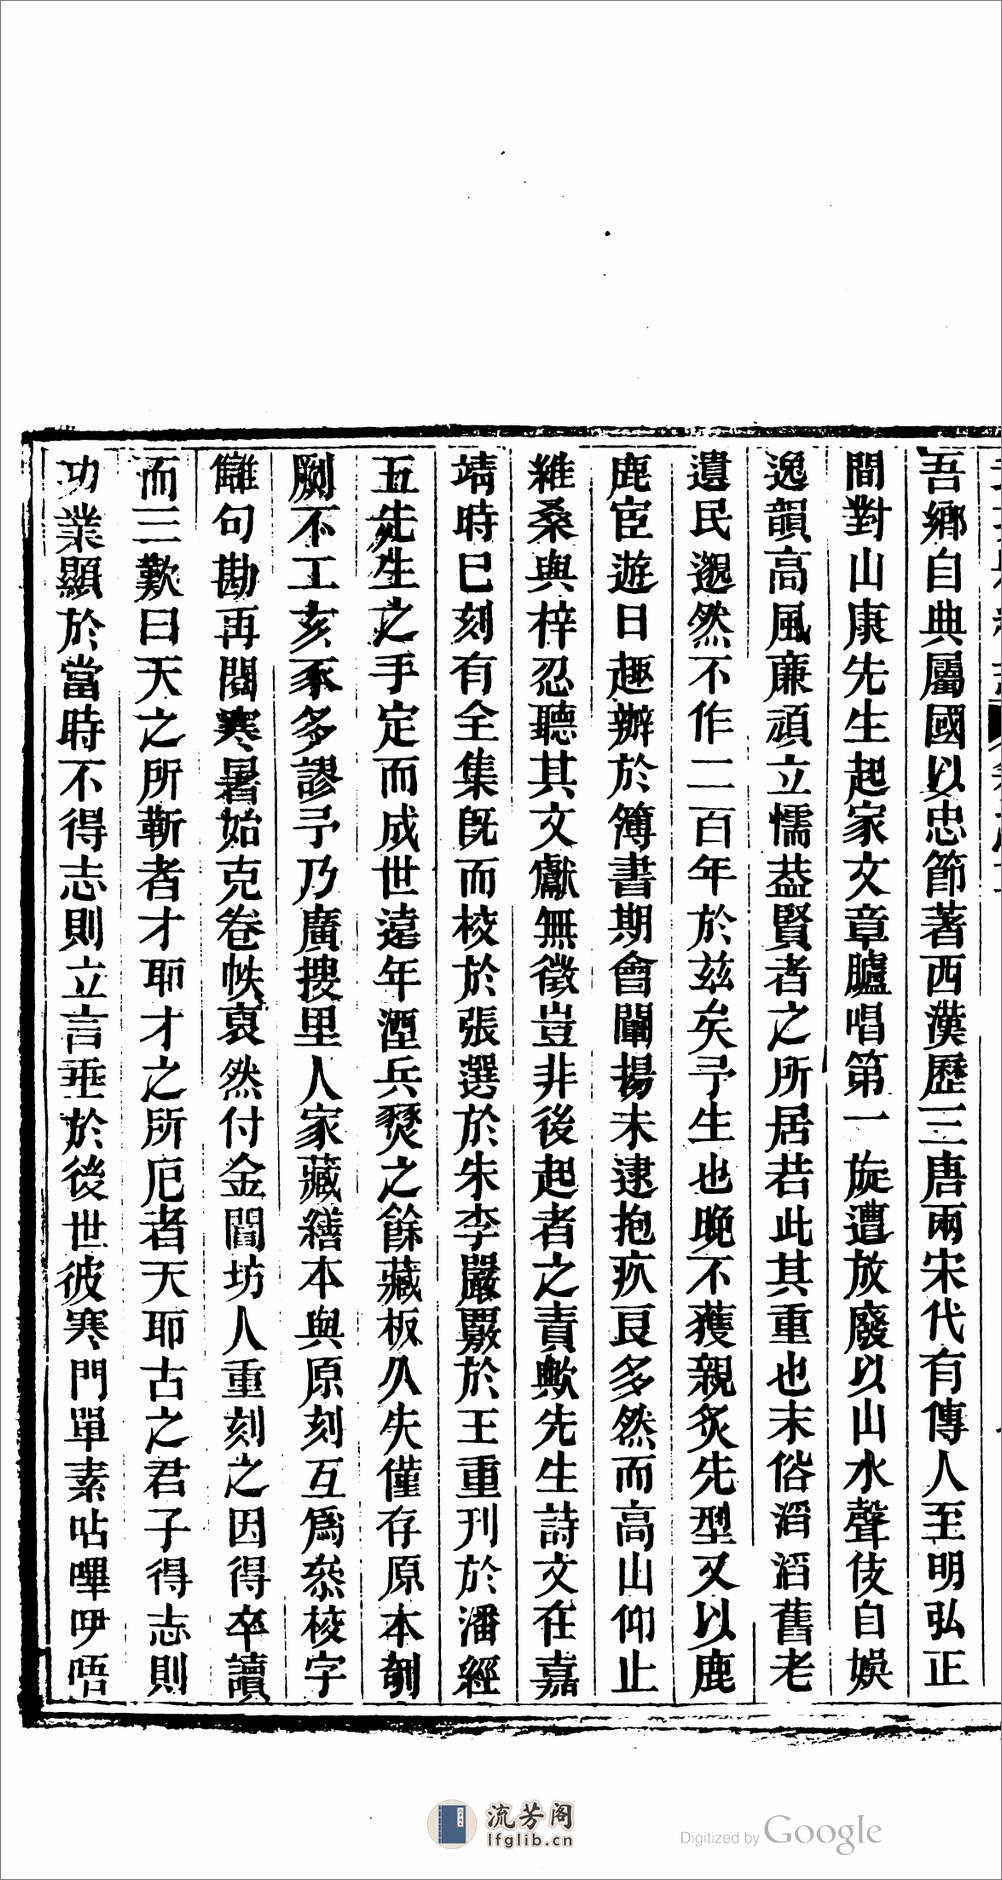 吾鄉自典屬國以忠節著西漢歷三唐兩宋代有傳人至明弘正
間對山康先生起家文章臚唱第一旋遭放廢以山水聲伎自娛
逸韻高風廉頑立懦葢賢者之所居若此其重也末俗滔滔舊老
遺民邈然不作二百年於茲矣予生也晚不獲親炙先型又以鹿
鹿宦遊日趣辦於簿書期會闡揚未逮抱疚良多然而高山仰止
維桑與梓忍聽其文獻無徵豈非後起者之責歟先生詩文在嘉
靖時已刻有全集旣而校於張選於朱李嚴覈於王重刊於潘經
五先生之手定而成世遠年湮兵燹之餘藏板久失僅存原本剞
劂不工亥豕多謬予乃廣搜里人家藏繕本與原刻互爲叅校字
讎句勘再閱寒暑始克卷帙裒然付金閶坊人重刻之因得卒讀
而三歎曰天之所靳者才耶才之所厄者天耶古之君子得志則
功業顯於當時不得志則立言垂於後世彼寒門單素呫嗶咿唔
流芳阁
lfglib.cn
Digitized by Google